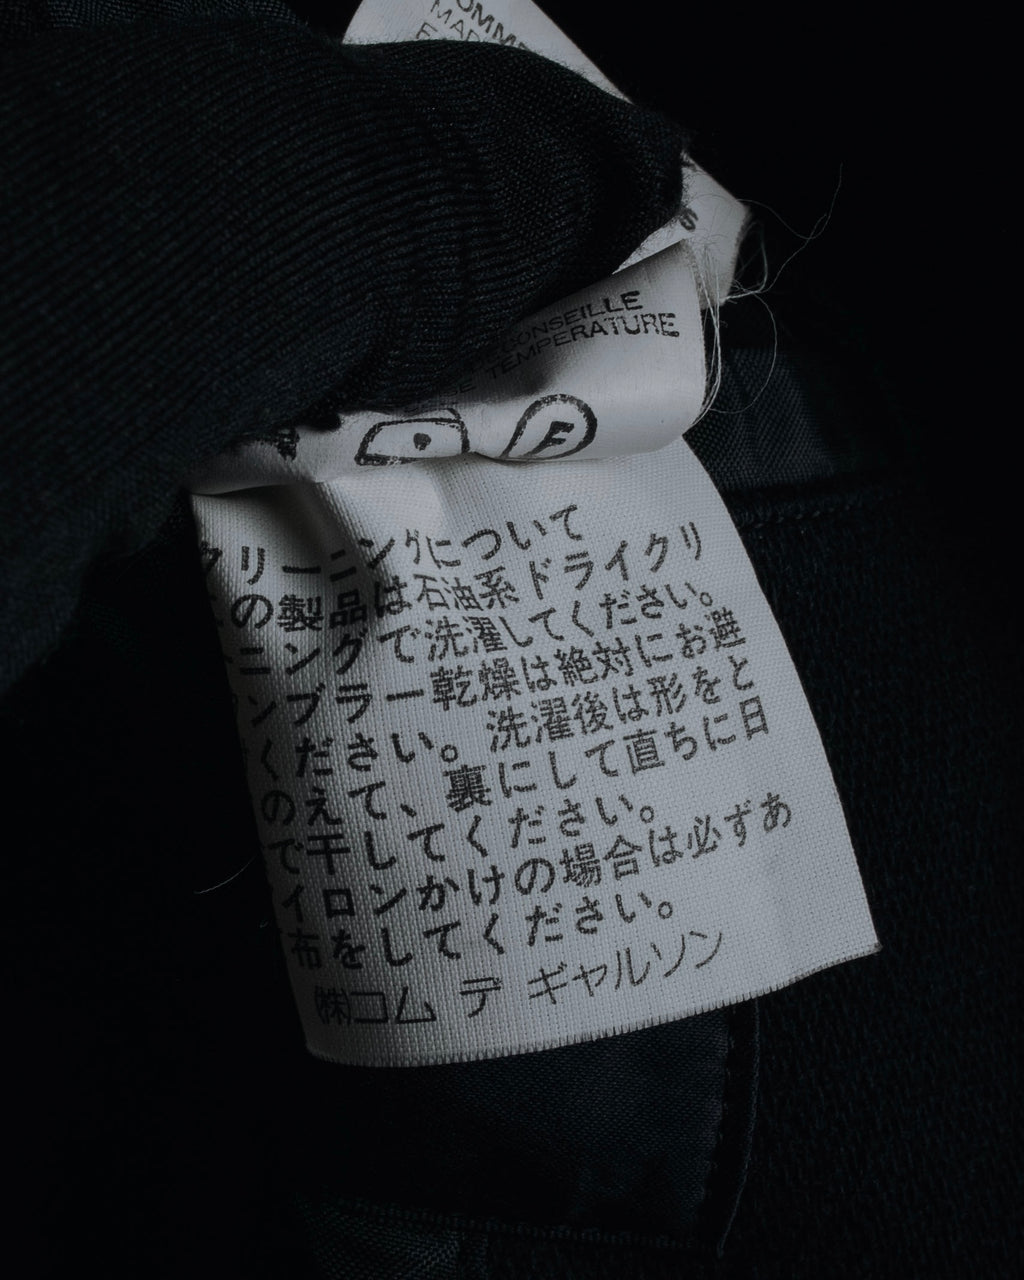 OMME
MAD
S
CONSEILLE
TEMPERATURE
F
クリーニングについて
この製品は石油系ドライクリ
ーニングで洗濯してください。
ンブラー乾燥は絶対にお避
ください。洗濯後は形をと
のえて、裏にして直ちに日
で干してください。
イロンかけの場合は必ずあ
布をしてください。
㈱コム デ ギャルソン